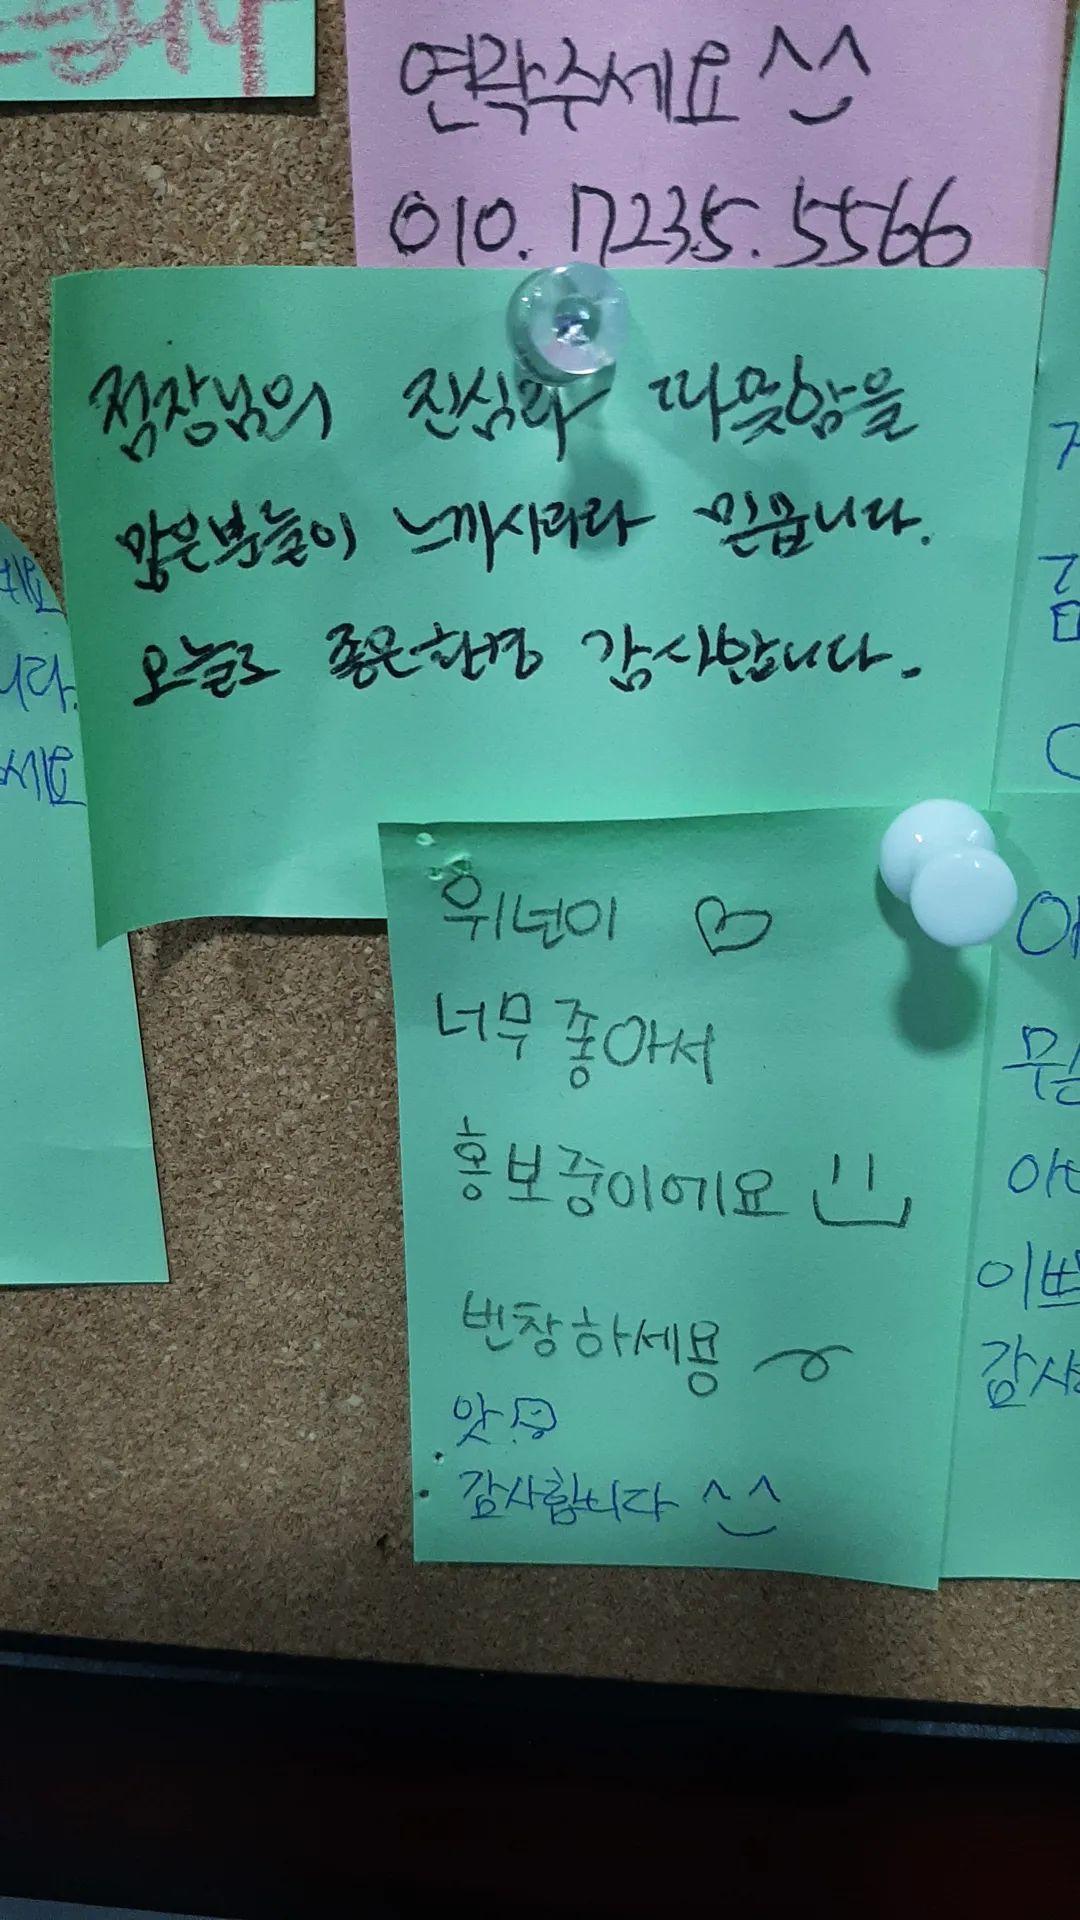 연락주세요 ^^
010. 7235. 5566
점장님의 진심과 따뜻함을
많은분들이 느끼시리라 믿습니다.
오늘도 좋은환경 감사합니다.
위넌이 ♡
너무 좋아서
홍보중이에요
번창하세용
앗
감사합니다 ^^
세요
니다.
세요
이쁘
감사